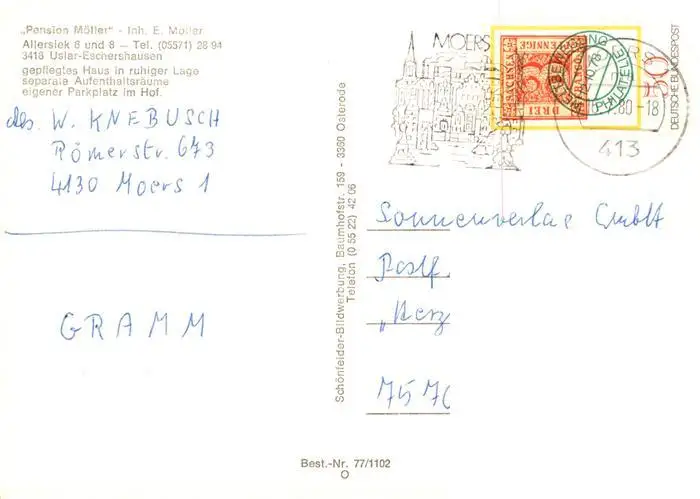 „Pension Möller" - Inh. E. Möller
Allersiek 6 und 8 – Tel. (05571) 28 94
3418 Uslar-Eschershausen
gepflegtes Haus in ruhiger Lage
separate Aufenthaltsräume
eigener Parkplatz im Hof.
W. KNEBUSCH
Römerstr. 673
4130 Moers 1
GRAMM
Schönfelder-Bildwerbung, Baumhofstr. 159 - 3360 Osterode
Telefon (0 55 22) 42 06
MOERS
DREI
PFENNIGE
SACHSEN
3
PHILATELIE
DEUTSCHE BUNDESPOST
80-18
413
Sonnenverlag GmbH
Postf.
„Herz
7570
Best.-Nr. 77/1102